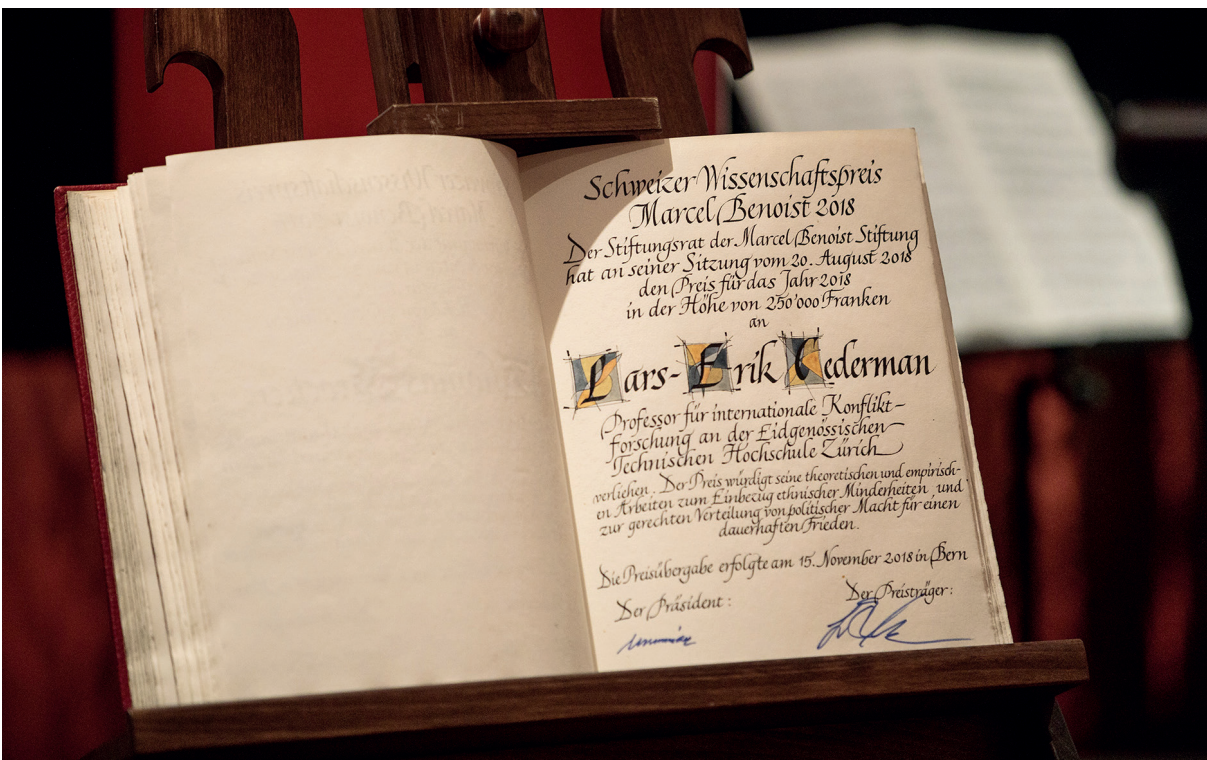 Schweizer Wissenschaftspreis
Marcel Benoist 2018
Der Stiftungsrat der Marcel Benoist Stiftung
hat an seiner Sitzung vom 20. August 2018
den Preis für das Jahr 2018
in der Höhe von 250'000 Franken
an
Lars-Erik Cederman
Professor für internationale Konflikt-
Forschung an der Eidgenössischen
Technischen Hochschule Zürich
verliehen. Der Preis würdigt seine theoretischen und empirisch-
en Arbeiten zum Einbezug ethnischer Minderheiten, und
zur gerechten Verteilung von politischer Macht für einen
dauerhaften Frieden.
Die Preisübergabe erfolgte am 15. November 2018 in Bern
Der Präsident:
Der Preisträger: